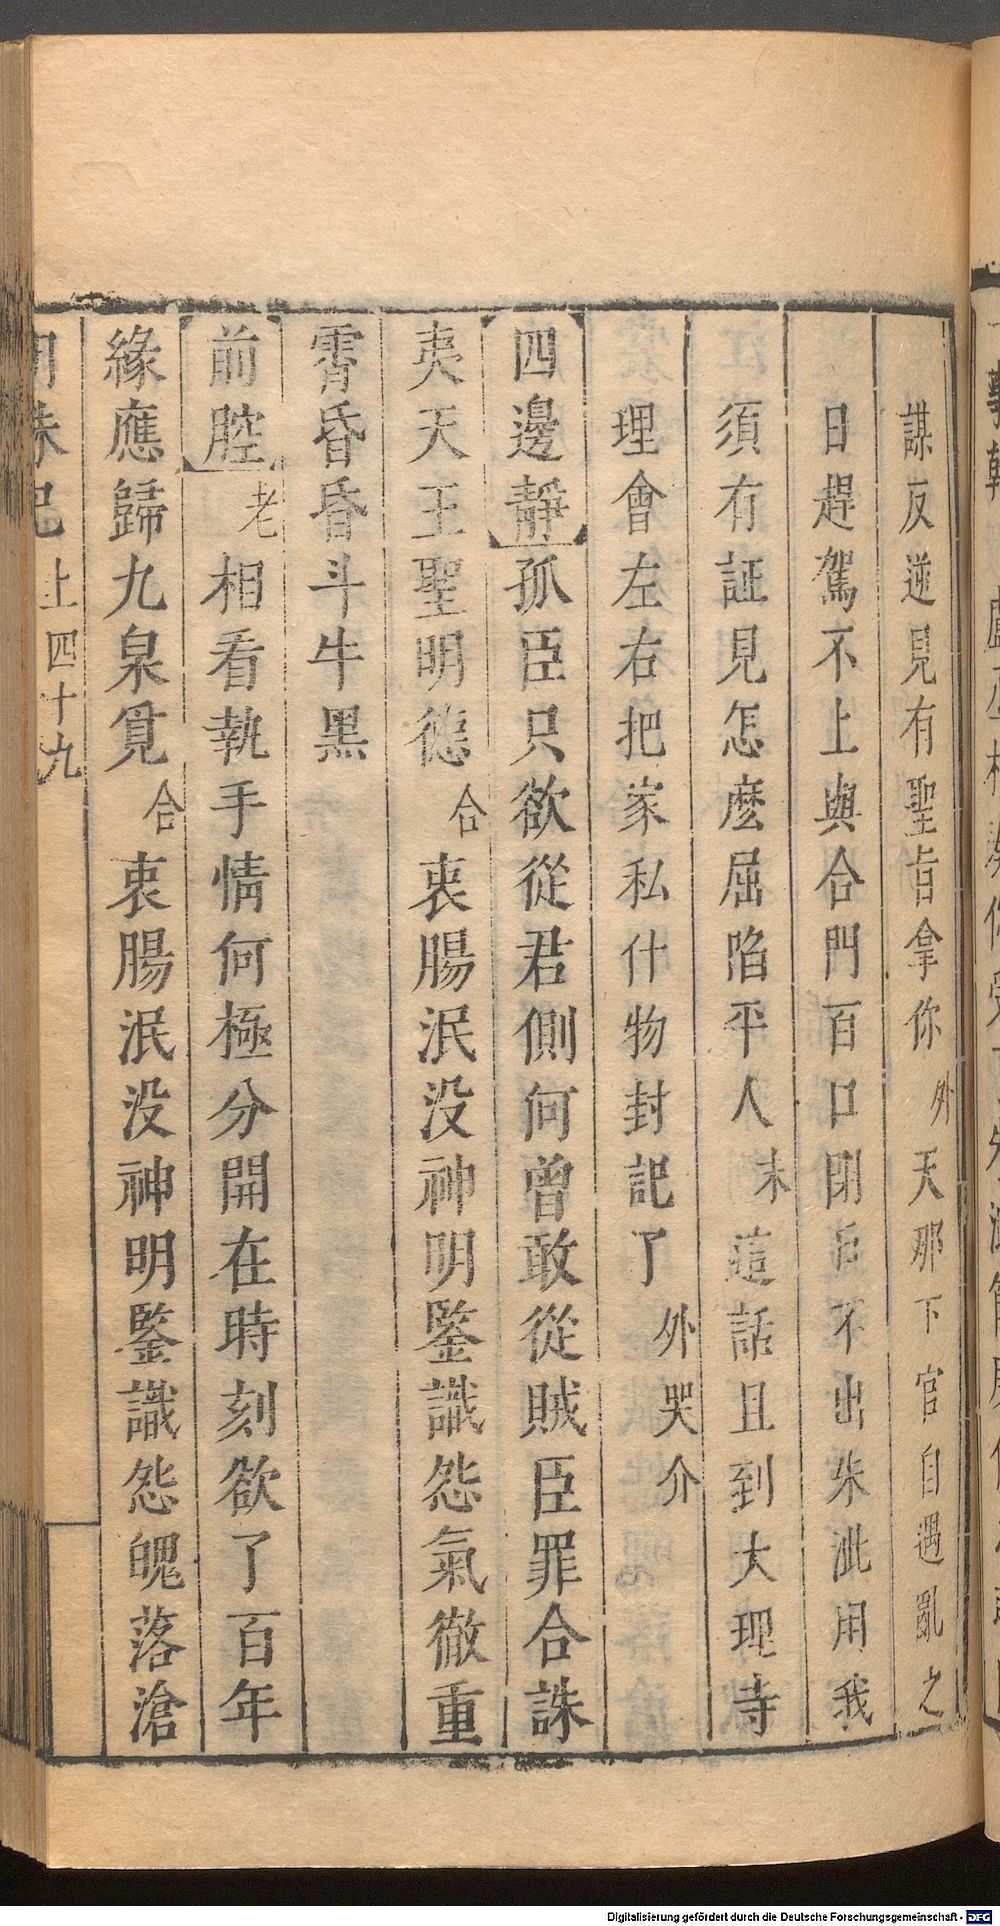 謀反逆見有聖旨拿你外天那下官自遇亂之
日趕駕不上與合門百口閉戸不出朱泚用我
須有証見怎麽屈陷平人末這話且到大理寺
理會左右把家私什物封記了外哭介
四邊靜孤臣只欲從君側何曾敢從賊臣罪合誅
夷天王聖明德合衷腸泯没神明鑒識怨氣徹重
霄昏昏斗牛黑
前腔老相看執手情何極分開在時刻欲了百年
緣應歸九泉覓合衷腸泯没神明鑒識怨魄落滄
上四十九
Digitalisierung gefördert durch die Deutsche Forschungsgemeinschaft - DFG